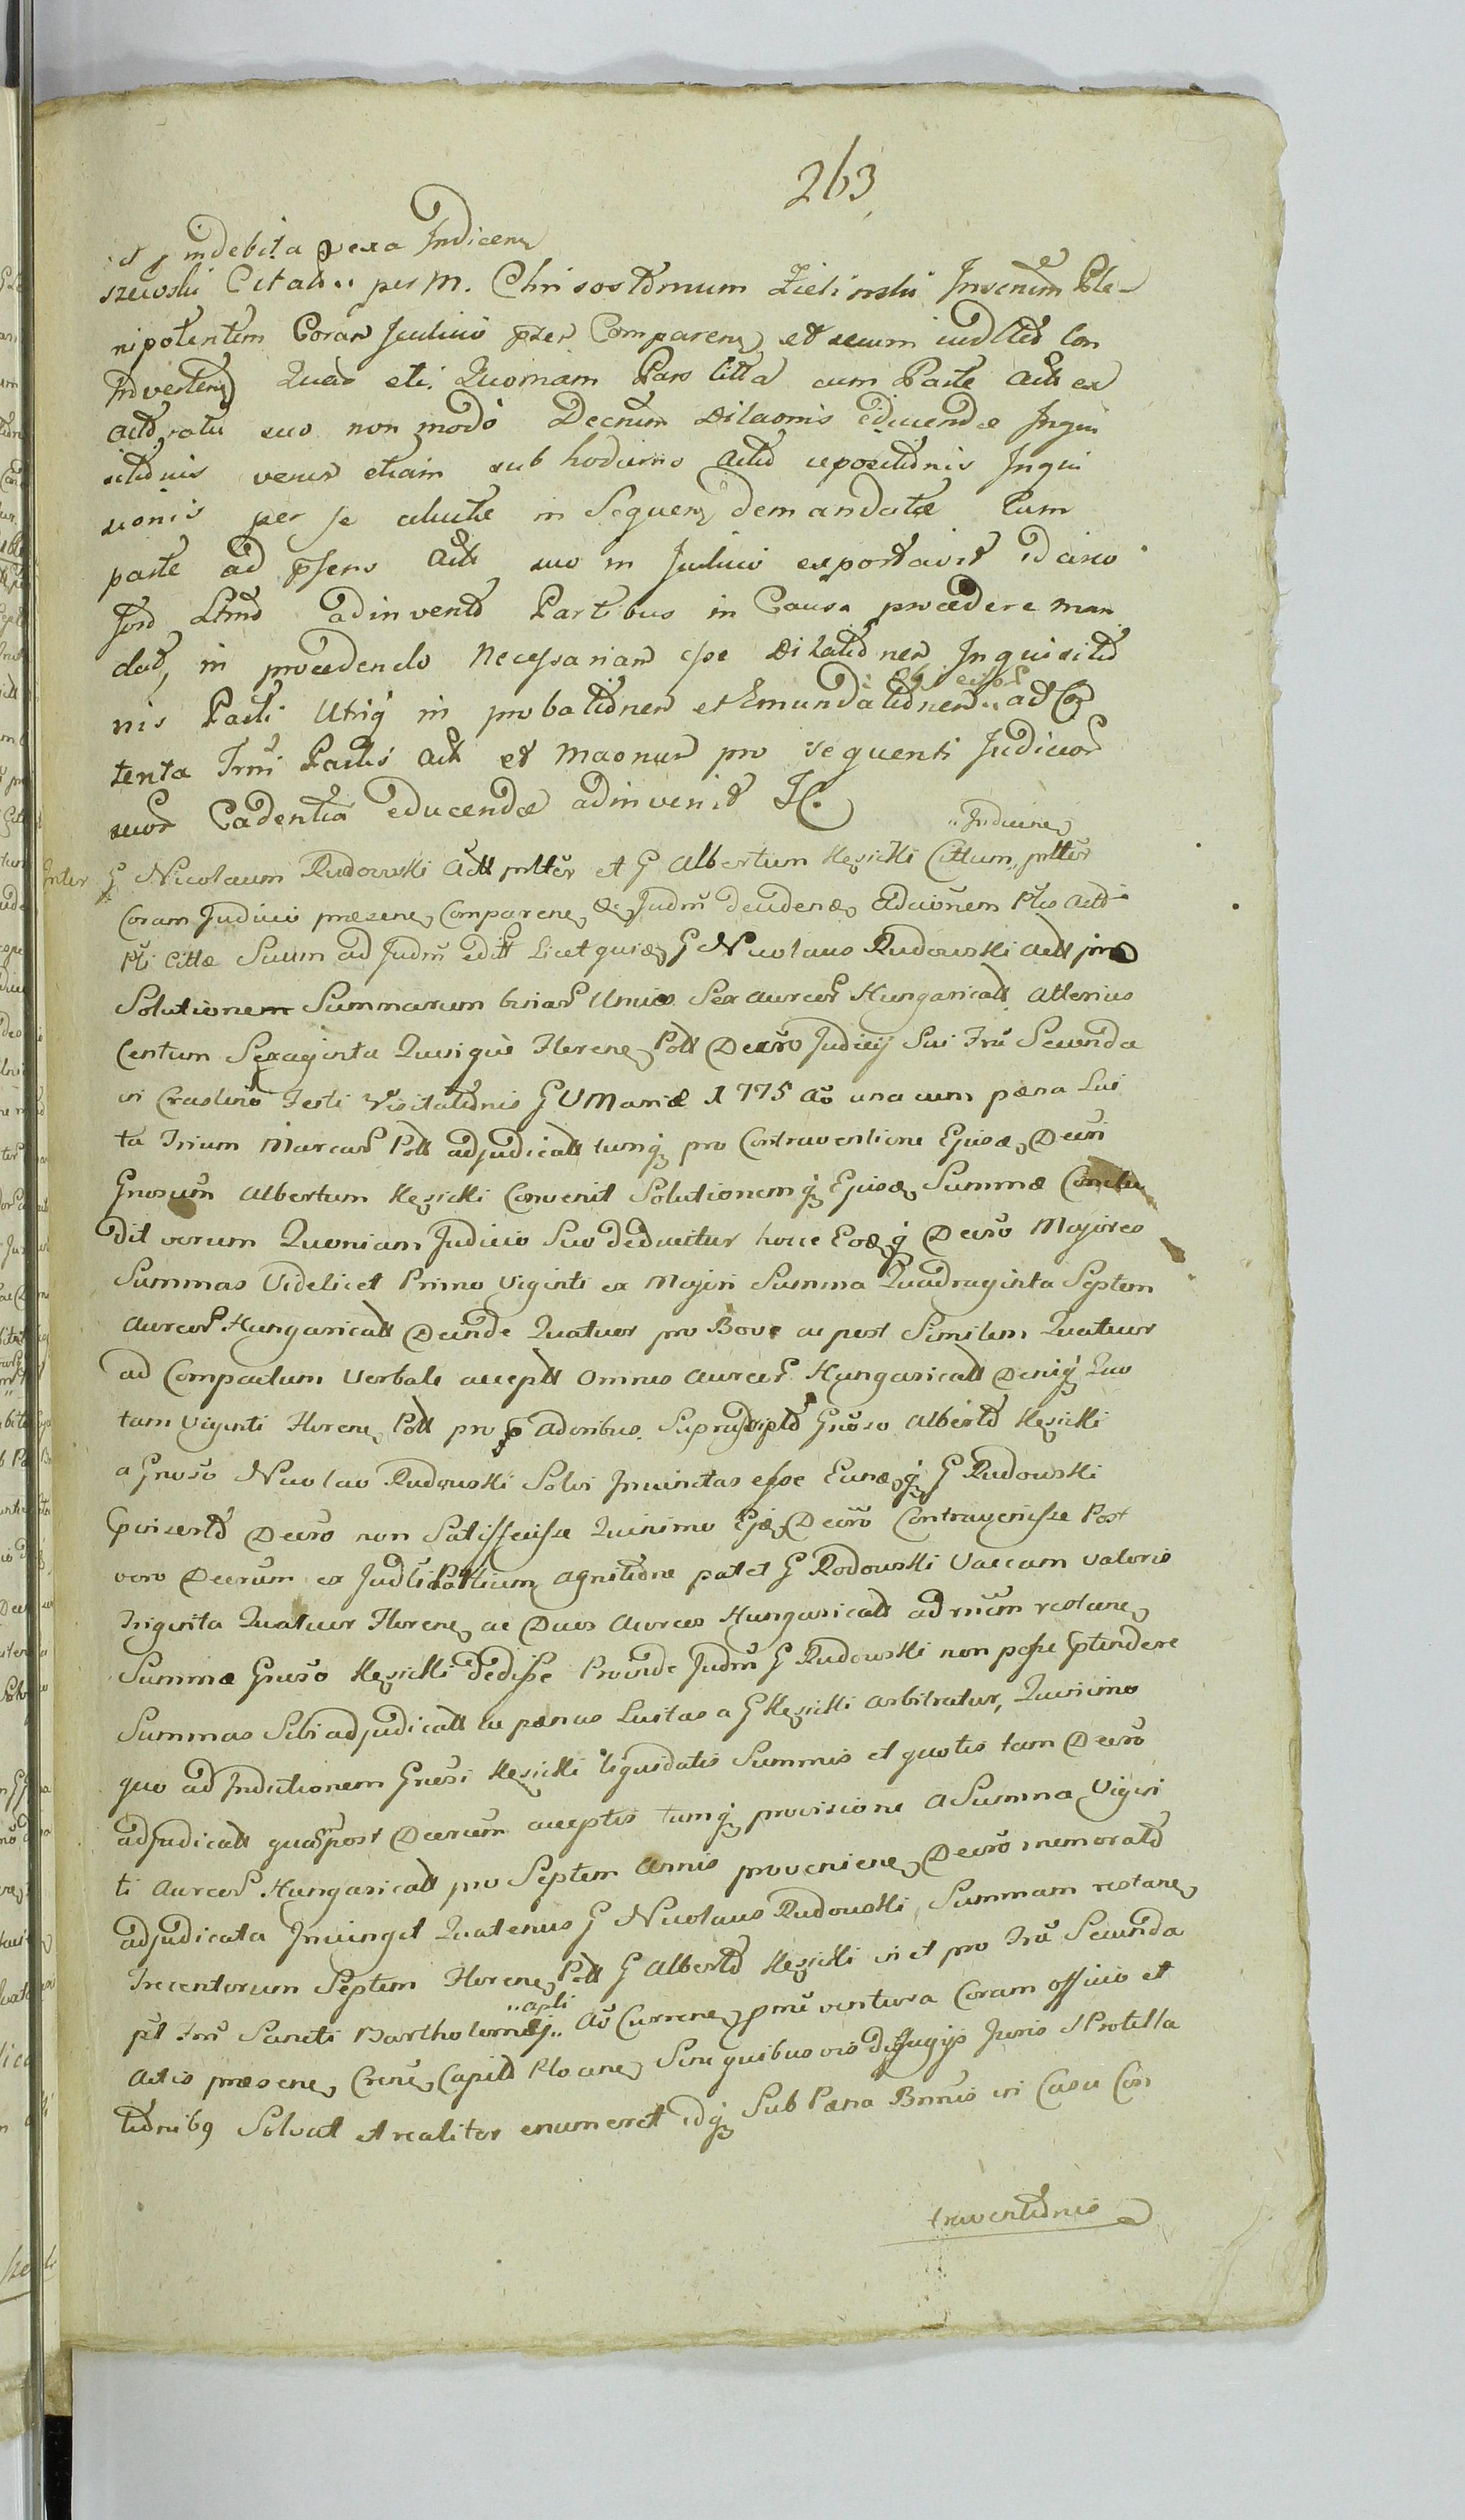 263
indebita vexa Indicen
szewski Citatu per M. Chrisostomum Zielinski Juvenem Ple-
nipotentem Coram Judicio pser Comparen et secum Con
Indverten Quas etc. Quoniam Pars Citta cum Parte Act ex
actoratu suo non modo Decrum Dilaonis educendae Inqui
sitionis verum etiam sub hodierno Inqui
per se in Sequen demandatae Cum
parte ad psens Act suo in Judicio exportavit idcirco
adinvento Partibus in Causa procedere man
dat, in procedendo Necessariam esse Dilationem Inquisitio
nis Parti Utriq in probationem et Emundationem ad Con
tenta Trni Partis Act et pro sequenti Judicior
suor Cadentia educendae adinvenit JC.
Inducine
Inter G Nicolaum Rudowski Actt plter et G Albertum Kezicki Cittum plter
Coram Judicio praesene Comparene Judm decidene Adcionem Ptis Actt
Pti Cittae Suum ad Judm editt Licet quide G Nicolaus Rudowski Actt pro
Solutionem Summarum binar Unius Sex aureor Hungaricall Alterius
Centum Sexaginta Quinque Florene Poll Decro Judicij Sui Fru Secunda
in Crastino Festi Visitationis G V Mariae 1775 Ao una cum paena Lui
ta Trium Marcar Poll adjudicatt tumq pro Contraventione Ejusde Decri
Gnosum Albertum Kezicki Convenit Solutionemq Ejusde Summae Conclu
dit verum Quoniam Judicio Suo deducitur hocce Eodeq Decro Majores
Summas Videlicet Primo Viginti ex Majori Summa Quadraginta Septem
Aureor Hungaricall Deinde Quatuor pro Bove ac post Similem Quatuor
ad Compactum Verbale acceptt Omnes Aureor Hungaricall Deniq Quo
tam Viginti Florene Poll pro Supra Gnoso Alberto Kezicki
a Gnoso Nicolao Rudowski Solvi Injunctas esse Eundeq G Rudowski
Decro non Satisfecisse Quinimo Ejde Decro Contravenisse Post
vero Decrum ex Partium agnitione patet G Rodowski Vaccam valoris
Triginta Quatuor Florene ac Duos Aureos Hungaricall ad restane
Summae Gnoso Kezicki dedisse Proinde Judm G Rudowski non posse Ptendere
Summas Sibi adjudicatt ac paenas Luitas a G Kezicki arbitratur, Quinimo
quo ad Indictionem Gnosi Kezicki liquidatis Summis et quotis tam Decro
adjudicatt quam post Decrum acceptis tumq provisione a Summa Vigin
ti Aureor Hungaricall pro Septem Annis proveniene Decro memorato
adjudicata Injungit Quatenus G Nicolaus Rudowski Summam restane
Trecentorum Septem Florene Poll G Alberto Kezicki in et pro Fru Secunda
pst Fm Sancti Bartholomaej apli Ao Currene pme ventura Coram officio et
Actis praesene Crene Capit Sine quibusvis diffugijs Juris Protella
tionibq Solvat et realiter enumeret idq Sub Paena Bnnis in Casu Con
traventionis